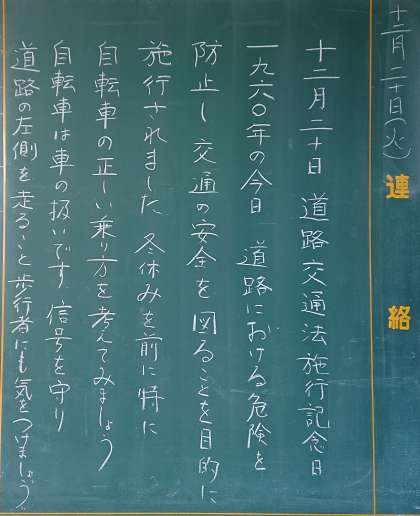 十二月二十日(火)
連絡
十二月二十日 道路交通法施行記念日
一九六〇年の今日 道路における危険を
防止し 交通の安全を図ることを目的に
施行されました 冬休みを前に特に
自転車の正しい乗り方を考えてみましょう
自転車は車の扱いです 信号を守り
道路の左側を走ること 歩行者にも気をつけましょう。